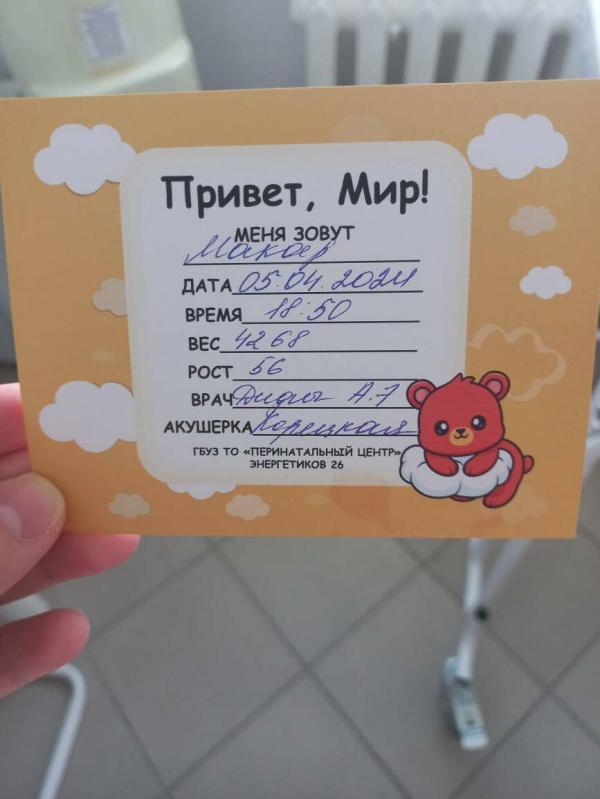 Привет, Мир!
МЕНЯ ЗОВУТ
Макар
ДАТА 05.04.2024
ВРЕМЯ 18:50
ВЕС 4268
РОСТ 56
ВРАЧ А.
АКУШЕРКА Корецкая
ГБУЗ ТО «ПЕРИНАТАЛЬНЫЙ ЦЕНТР»
ЭНЕРГЕТИКОВ 26